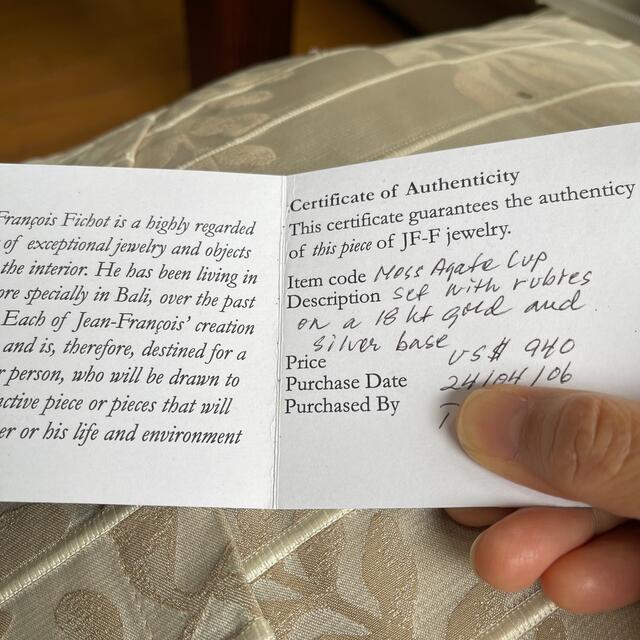 François Fichot is a highly regarded
of exceptional jewelry and objects
the interior. He has been living in
ore specially in Bali, over the past
Each of Jean-François' creation
and is, therefore, destined for a
r person, who will be drawn to
nctive piece or pieces that will
er or his life and environment
Certificate of Authenticity
This certificate guarantees the authenticy
of this piece of JF-F jewelry.
Item code Moss Agate Cup
Description set with rubies
on a 18 kt gold and
silver base
Price US$ 940
Purchase Date 24/04/06
Purchased By